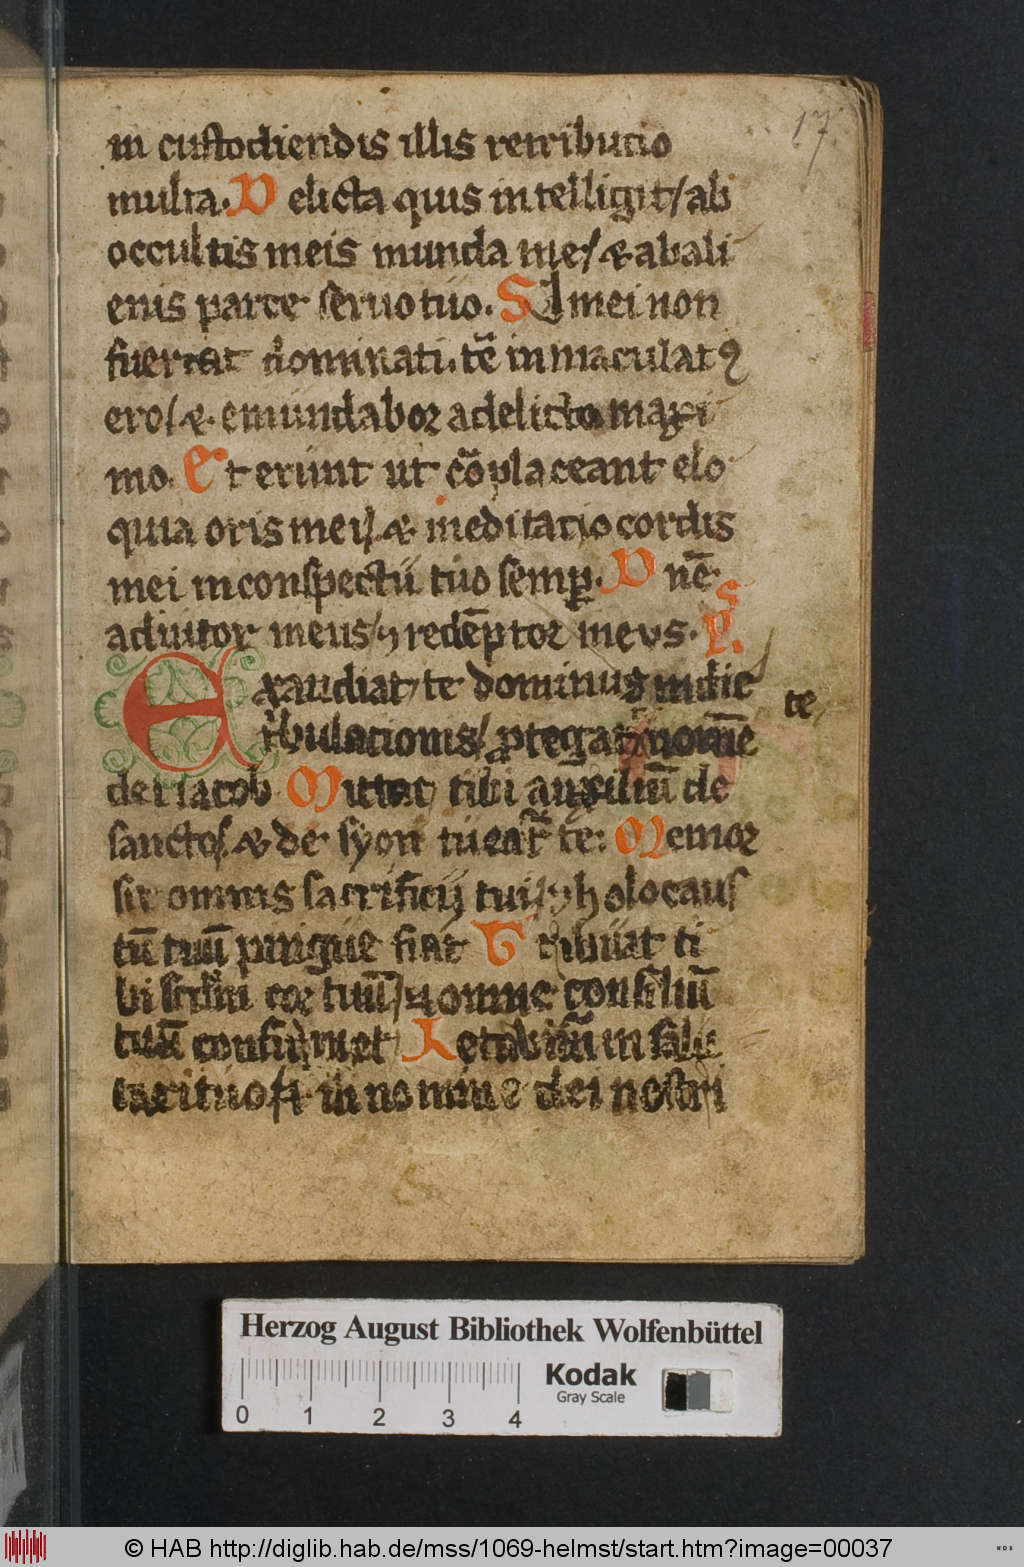 17
in custodiendis illis retributio
multa. Delicta quis intelligit/ ab
occultis meis munda me/ & abali
enis parce seruo tuo. Si mei non
fuerint dominati. tc̄ inmaculatꝰ
ero/ & emundabor a delicto maxi
mo. Et erunt ut cōplaceant elo
quia oris mei/ & meditatio cordis
mei in conspectu tuo semꝑ. Dne
adiutor meus/ ⁊ redēptor meus. ps.
Exaudiat te dominus in die
tribulationis/ ꝓtegat te nomē
dei iacob Mittat tibi auxiliū de
sancto/ & de syon tueat᷑ te: Memor
sit omnis sacrificij tui/ ⁊ holocaus
tū tuū pingue fiat Tribuat ti
bi scdm cor tuū/ ⁊ omne consiliū
tuū confirmet Letabimur in salu
tari tuo/ & in nomine dei nostri
Herzog August Bibliothek Wolfenbüttel
Kodak
Gray Scale
0 1 2 3 4
© HAB http://diglib.hab.de/mss/1069-helmst/start.htm?image=00037